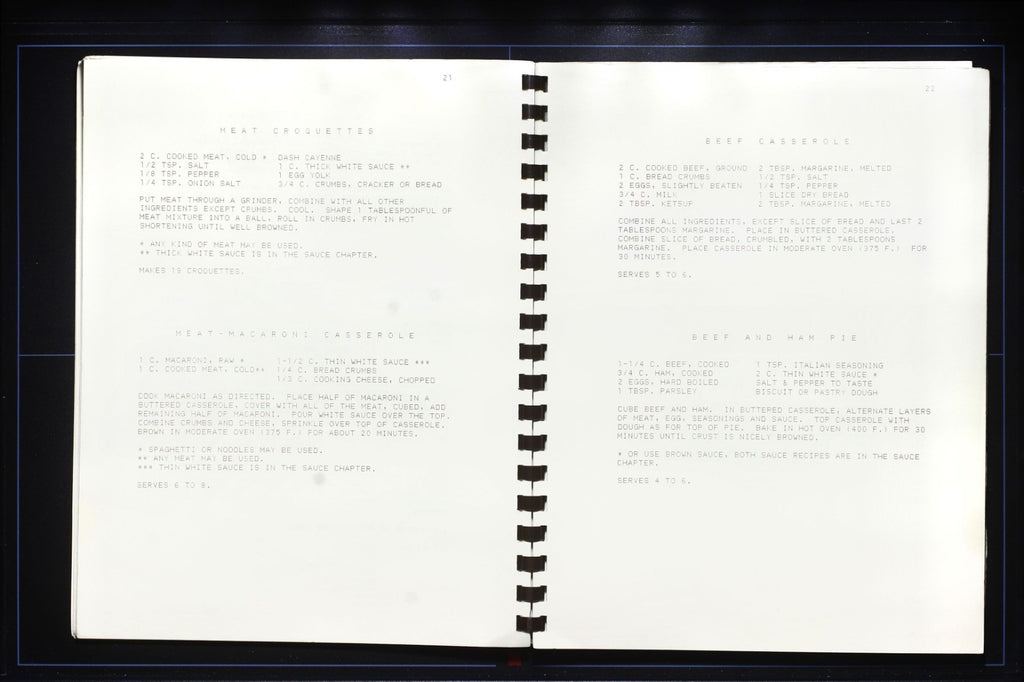 21
M E A T   C R O Q U E T T E S
2 C. COOKED MEAT, COLD *   DASH CAYENNE
1/2 TSP. SALT   1 C. THICK WHITE SAUCE **
1/8 TSP. PEPPER   1 EGG YOLK
1/4 TSP. ONION SALT   3/4 C. CRUMBS, CRACKER OR BREAD
PUT MEAT THROUGH A GRINDER, COMBINE WITH ALL OTHER
INGREDIENTS EXCEPT CRUMBS.  COOL.  SHAPE 1 TABLESPOONFUL OF
MEAT MIXTURE INTO A BALL, ROLL IN CRUMBS, FRY IN HOT
SHORTENING UNTIL WELL BROWNED.
* ANY KIND OF MEAT MAY BE USED.
** THICK WHITE SAUCE IS IN THE SAUCE CHAPTER.
MAKES 19 CROQUETTES.
M E A T - M A C A R O N I   C A S S E R O L E
1 C. MACARONI, RAW *   1-1/2 C. THIN WHITE SAUCE ***
1 C. COOKED MEAT, COLD**   1/4 C. BREAD CRUMBS
1/3 C. COOKING CHEESE, CHOPPED
COOK MACARONI AS DIRECTED.  PLACE HALF OF MACARONI IN A
BUTTERED CASSEROLE, COVER WITH ALL OF THE MEAT, CUBED, ADD
REMAINING HALF OF MACARONI.  POUR WHITE SAUCE OVER THE TOP.
COMBINE CRUMBS AND CHEESE, SPRINKLE OVER TOP OF CASSEROLE.
BROWN IN MODERATE OVEN (375 F.) FOR ABOUT 20 MINUTES.
* SPAGHETTI OR NOODLES MAY BE USED.
** ANY MEAT MAY BE USED.
*** THIN WHITE SAUCE IS IN THE SAUCE CHAPTER.
SERVES 6 TO 8.
22
B E E F   C A S S E R O L E
2 C. COOKED BEEF, GROUND   2 TBSP. MARGARINE, MELTED
1 C. BREAD CRUMBS   1/2 TSP. SALT
2 EGGS, SLIGHTLY BEATEN   1/4 TSP. PEPPER
3/4 C. MILK   1 SLICE DRY BREAD
2 TBSP. KETSUP   2 TBSP. MARGARINE, MELTED
COMBINE ALL INGREDIENTS, EXCEPT SLICE OF BREAD AND LAST 2
TABLESPOONS MARGARINE.  PLACE IN BUTTERED CASSEROLE.
COMBINE SLICE OF BREAD, CRUMBLED, WITH 2 TABLESPOONS
MARGARINE.  PLACE CASSEROLE IN MODERATE OVEN (375 F.)  FOR
30 MINUTES.
SERVES 5 TO 6.
B E E F   A N D   H A M   P I E
1-1/4 C. BEEF, COOKED   1 TSP. ITALIAN SEASONING
3/4 C. HAM, COOKED   2 C. THIN WHITE SAUCE *
2 EGGS, HARD BOILED   SALT & PEPPER TO TASTE
1 TBSP. PARSLEY   BISCUIT OR PASTRY DOUGH
CUBE BEEF AND HAM.  IN BUTTERED CASSEROLE, ALTERNATE LAYERS
OF MEAT, EGG, SEASONINGS AND SAUCE.  TOP CASSEROLE WITH
DOUGH AS FOR TOP OF PIE.  BAKE IN HOT OVEN (400 F.) FOR 30
MINUTES UNTIL CRUST IS NICELY BROWNED.
* OR USE BROWN SAUCE, BOTH SAUCE RECIPES ARE IN THE SAUCE
CHAPTER.
SERVES 4 TO 6.